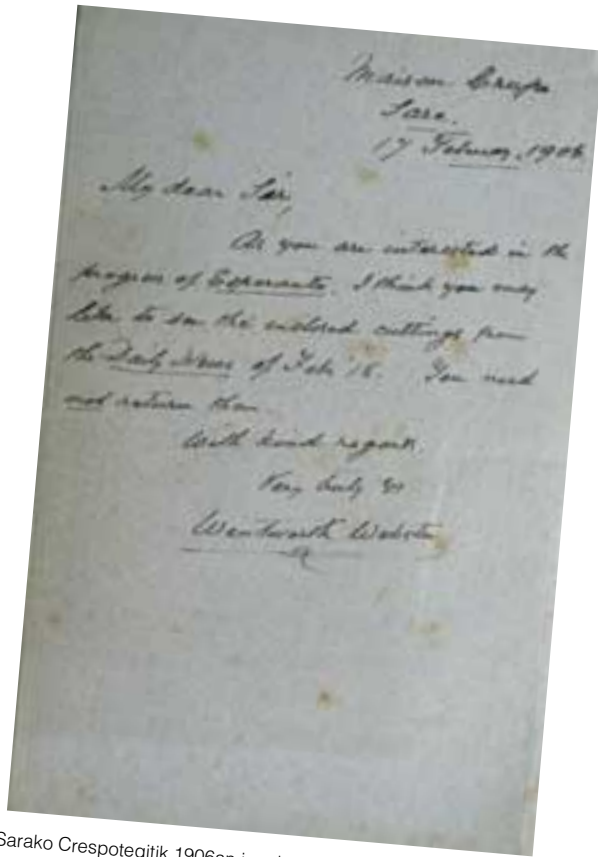 Maison Crespo
Sare.
17 February. 1906
My dear Sir,
As you are interested in the
progress of Esperanto. I think you may
like to see the enclosed cuttings from
the Daily News of Feb 15. You need
not return them.
With kind regards,
Very truly yrs
Wentworth Webster
Sarako Crespotegitik 1906an